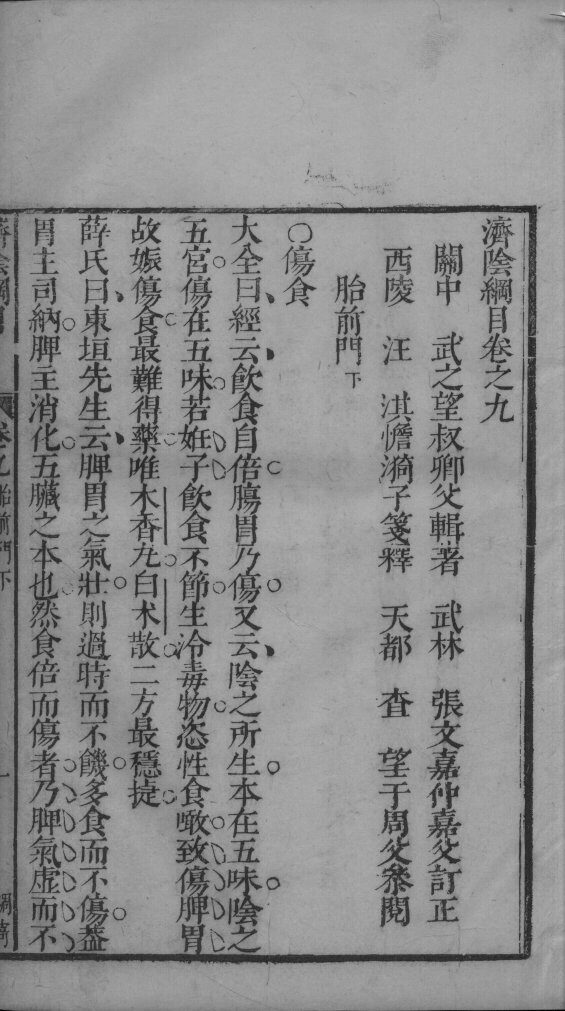 濟陰綱目卷之九
關中 武之望叔卿父輯著 武林 張文嘉仲嘉父訂正
西陵 汪 淇憺漪子箋釋 天都 查 望于周父叅閱
胎前門下
○傷食
大全曰經云飲食自倍膓胃乃傷又云陰之所生本在五味陰之
五宮傷在五味若姙子飲食不節生冷毒物恣性食噉致傷脾胃
故娠傷食最難得藥唯木香𠇗白术散二方最穩㨗
薛氏曰東垣先生云脾胃之氣壯則過時而不饑多食而不傷葢
胃主司納脾主消化五臟之本也然食倍而傷者乃脾氣虛而不
濟陰綱目 卷九 胎前門下 一